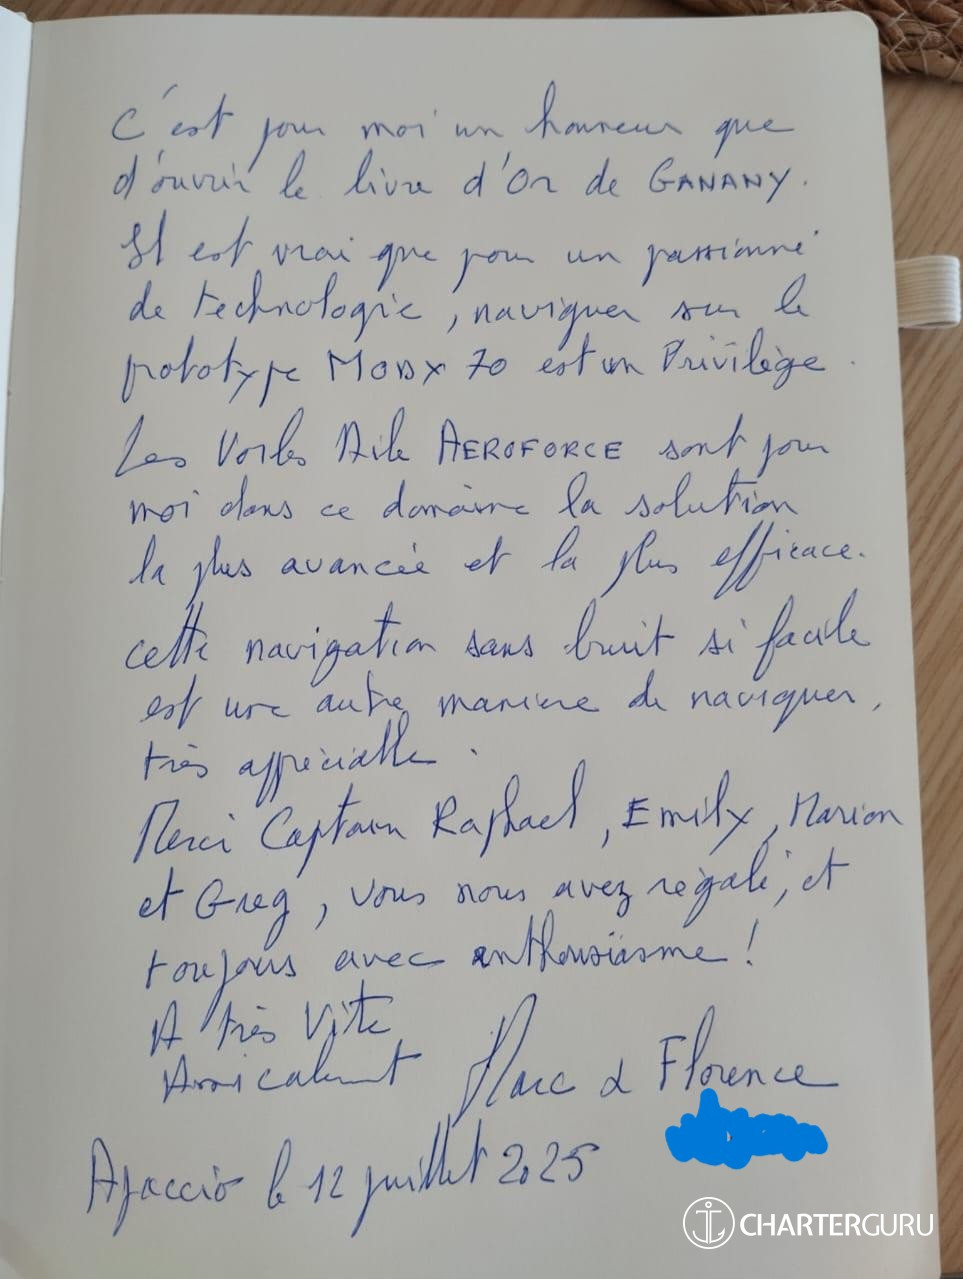 C'est pour moi un honneur que
d'ouvrir le livre d'Or de GANANY.
Il est vrai que pour un passionné
de technologie, naviguer sur le
prototype MODX 70 est un Privilège.
Les Voiles Aile AEROFORCE sont pour
moi dans ce domaine la solution
la plus avancée et la plus efficace.
cette navigation sans bruit si facile
est une autre manière de naviguer,
très appréciable.
Merci Captain Raphael, Emily, Marion
et Greg, vous nous avez régalé, et
toujours avec enthousiasme !
A très Vite
Amicalement Marc & Florence
Ajaccio le 12 juillet 2025
CHARTERGURU